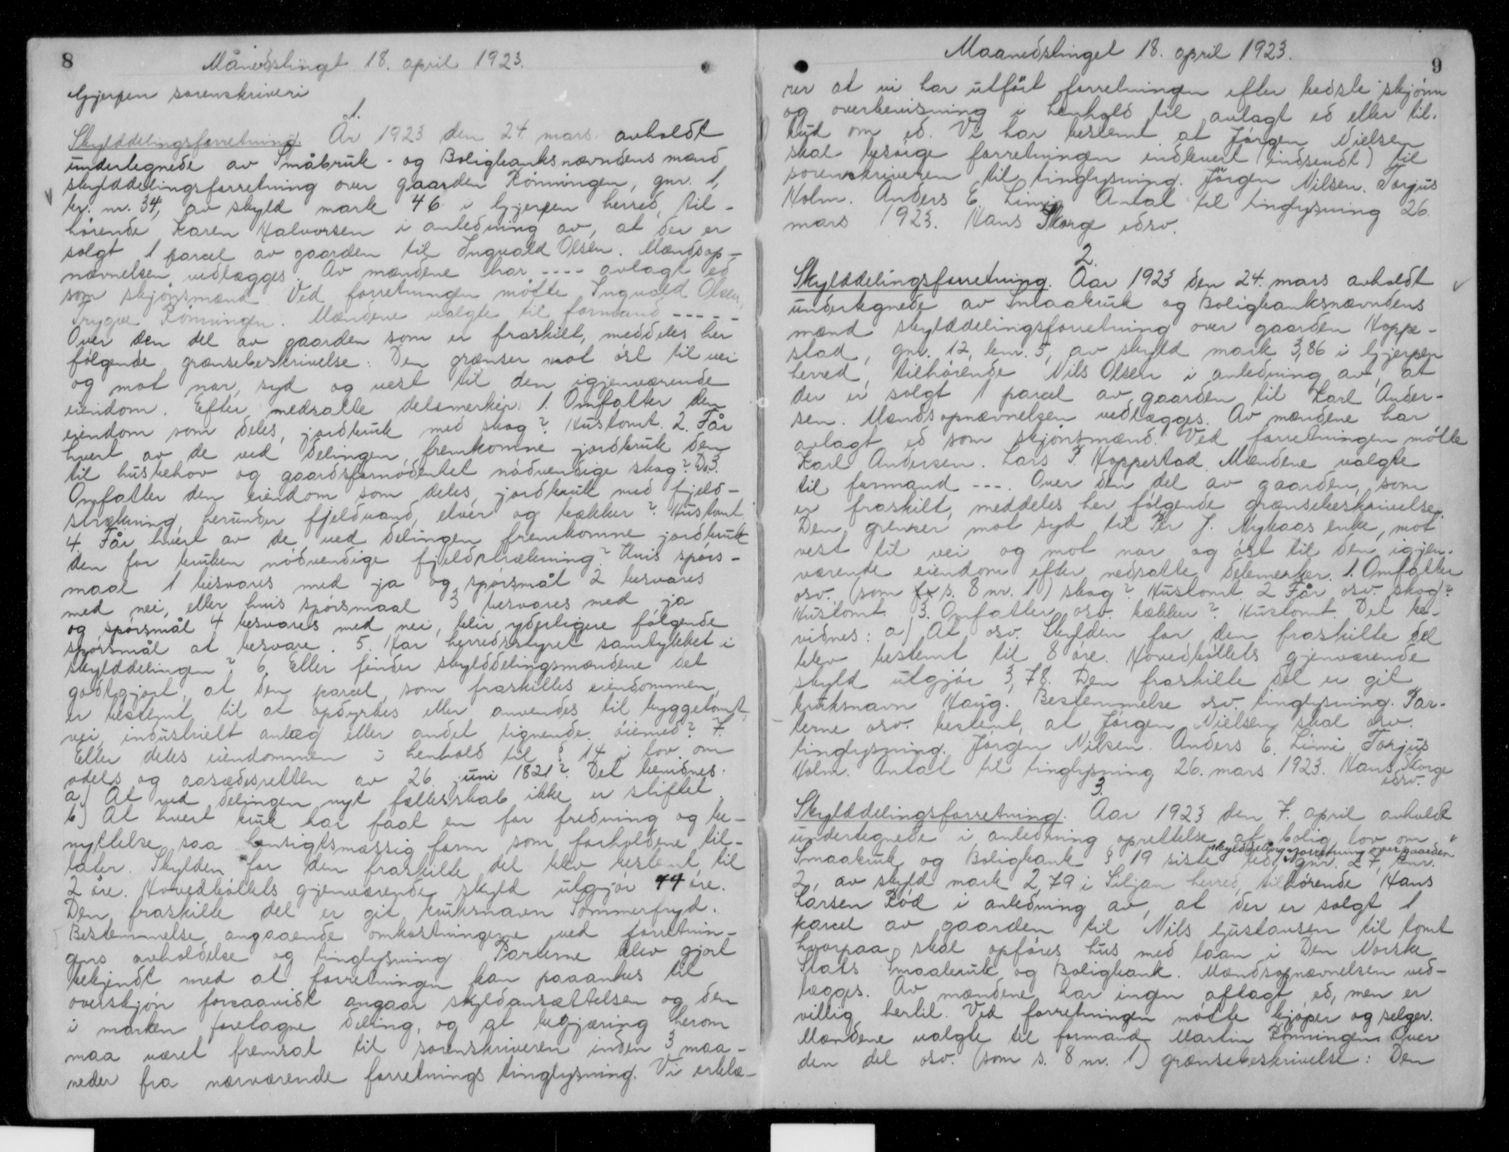 8
Månedstinget 18. april 1923.
Gjerpen sorenskriveri
1.
Skylddelingsforretning. År 1923 den 24 mars avholdt
undertegnede av Småbruk- og Boligbanksnævndens mænd
skylddelingsforretning over gaarden Rönningen, gnr. 1,
br. nr. 34, av skyld mark 46 i Gjerpen herred, til-
hörende Karen Halvorsen i anledning av, at der er
solgt 1 parcel av gaarden til Ingvald Olsen. Mændsop-
nævnelsen vedlægges. Av mændene har ---- avlagt ed
som skjönsmænd. Ved forretningen mötte Ingvald Olsen,
Trygve Rönningen. Mændene valgte til formand -----
Over den del av gaarden som er fraskilt, meddeles her
fölgende grænsebeskrivelse: Den grænser mot öst til vei
og mot nor, syd og vest til den igjenværende
eiendom. Efter nedsatte delemerker. 1. Omfatter den
eiendom som deles, jordbruk med skog? Hustomt. 2. Får
hvert av de ved delingen fremkomne jordbruk den
til husbehov og gaardsfornödenhet nödvendige skog? Do 3.
Omfatter den eiendom som deles, jordbruk med fjeld-
strækning, herunder fjeldvand, elver og bækker? Hustomt
4 Får hvert av de ved delingen fremkomne jordbruk
den for bruken nödvendige fjeldstrækning? Hvis spörs-
maal 1 besvares med ja og spörsmål 2 besvares
med nei, eller hvis spörsmaal 3 besvares med ja
og spörsmål 4 besvares med nei, blir yderligere fölgende
spörsmål at besvare. 5 Har herredsstyret samtykket i
skylddelingen? 6. Eller finder skylddelingsmændene det
godtgjort, at den parcel, som fraskilles eiendommen,
er bestemt til at opdyrkes eller anvendes til byggetomt,
vei, industrielt anlæg eller andet lignende öiemed? 7.
Eller deles eiendommen i henhold til § 14 i lov om
odels og aasædesretten av 26 juni 1821? Det bevidnes:
a.) At ved delingen nyt fællesskab ikke er stiftet.
b.) At hvert bruk har faat en for fredning og be-
nyttelse saa hensigtsmæssig form som forholdene til-
later. Skylden for den fraskilte del blev bestemt til
2 öre. Hovedbölets gjenværende skyld utgjör 44 öre.
Den fraskilte del er git bruksnavn Sommerfryd.
Bestemmelse angaaende omkostningene ved forretnin-
gens avholdelse og tinglysning. Parterne blev gjort
bekjendt med at forretningen kan paaankes til
overskjön forsaavidt angaar skyldansættelsen og den
i marken foretagne deling, og at begjæring herom
maa været fremsat til sorenskriveren inden 3 maa-
neder fra nærværende forretnings tinglysning. Vi erklæ-
9
Maanedstinget 18. april 1923.
rer at vi har utfört forretningen efter bedste skjönn
og overbevisning i henhold til avlagt ed eller til-
bud om ed. Vi har bestemt at Jörgen Nielsen
skal besörge forretningen indlevert (indsendt) til
sorenskriveren til tinglysning. Jörgen Nilsen. Torjus
Holm. Anders E. Limi. Antat til tinglysning 26.
mars 1923. Hans Skorge edsv.
2.
Skylddelingsforretning. Aar 1923 den 24. mars avholdt
undertegnede av Smaabruk og Boligbanksnævndens
mænd skylddelingsforretning over gaarden Hoppe-
stad, gnr. 12, bnr. 5, av skyld mark 3,86 i Gjerpen
herred, tilhörende Nils Olsen i anledning av, at
der er solgt 1 parcel av gaarden til Karl Ander-
sen. Mændsopnævnelsen vedlægges. Av mændene har
avlagt ed som skjönsmænd. Ved forretningen mötte
Karl Andersen. Lars P. Hoppestad. Mændene valgte
til formand ---. Over den del av gaarden, som
er fraskilt, meddeles her fölgende grænsebeskrivelse.
Den grenser mot syd til Per J. Nykaas enke, mot
vest til vei og mot nor og öst til den igjen-
værende eiendom efter nedsatte delemerker. 1. Omfatter
osv. (som s. 8 nr. 1) skog? Hustomt. 2 Får osv. skog?
Hustomt. 3. Omfatter osv. bækker? Hustomt. Det be-
vidnes: a.) At osv. Skylden for den fraskilte del
blev bestemt til 8 öre. Hovedbölets gjenværende
skyld utgjör 3,78. Den fraskilte del er git
bruksnavn Haug. Bestemmelse osv. tinglysning. Par-
terne osv. bestemt, at Jörgen Nielsen skal osv.
tinglysning. Jörgen Nilsen. Anders E. Limi. Torjus
Holm. Antat til tinglysning 26. mars 1923. Hans Skorge
edsv.
3.
Skylddelingsforretning. Aar 1923 den 7. april avholdt
undertegnede i anledning oprettelse af bolig lov om
Smaabruk og Boligbank § 19 siste led, skylddelingsforretning over gaarden gnr. 27, bnr.
2, av skyld mark 2,79 i Siljan herred, tilhörende Hans
Larsen Röd i anledning av, at der er solgt 1
parcel av gaarden til Nils Gustavsen til tomt
hvorpaa skal opföres hus med laan i Den Norske
Stats Smaabruk og Boligbank. Mændsopnævnelsen ved-
lægges. Av mændene har ingen aflagt ed, men er
villig hertil. Ved forretningen mötte kjöper og selger.
Mændene valgte til formand Martin Rönningen. Over
den del osv. (som s. 8 nr. 1) grænsebeskrivelse: Den